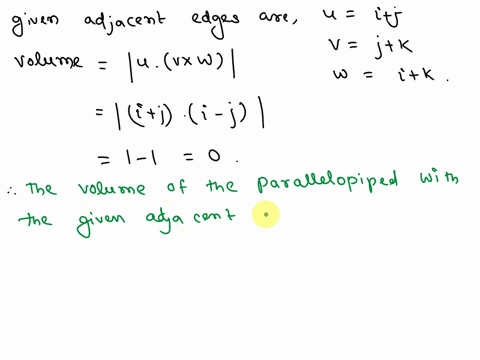 given adjacent edges are, u = i+j
v = j+k
volume = |u.(v×w)|
w = i+k.
= |(i+j).(i-j)|
= 1-1 = 0.
∴ The volume of the parallelopiped with
the given adjacent